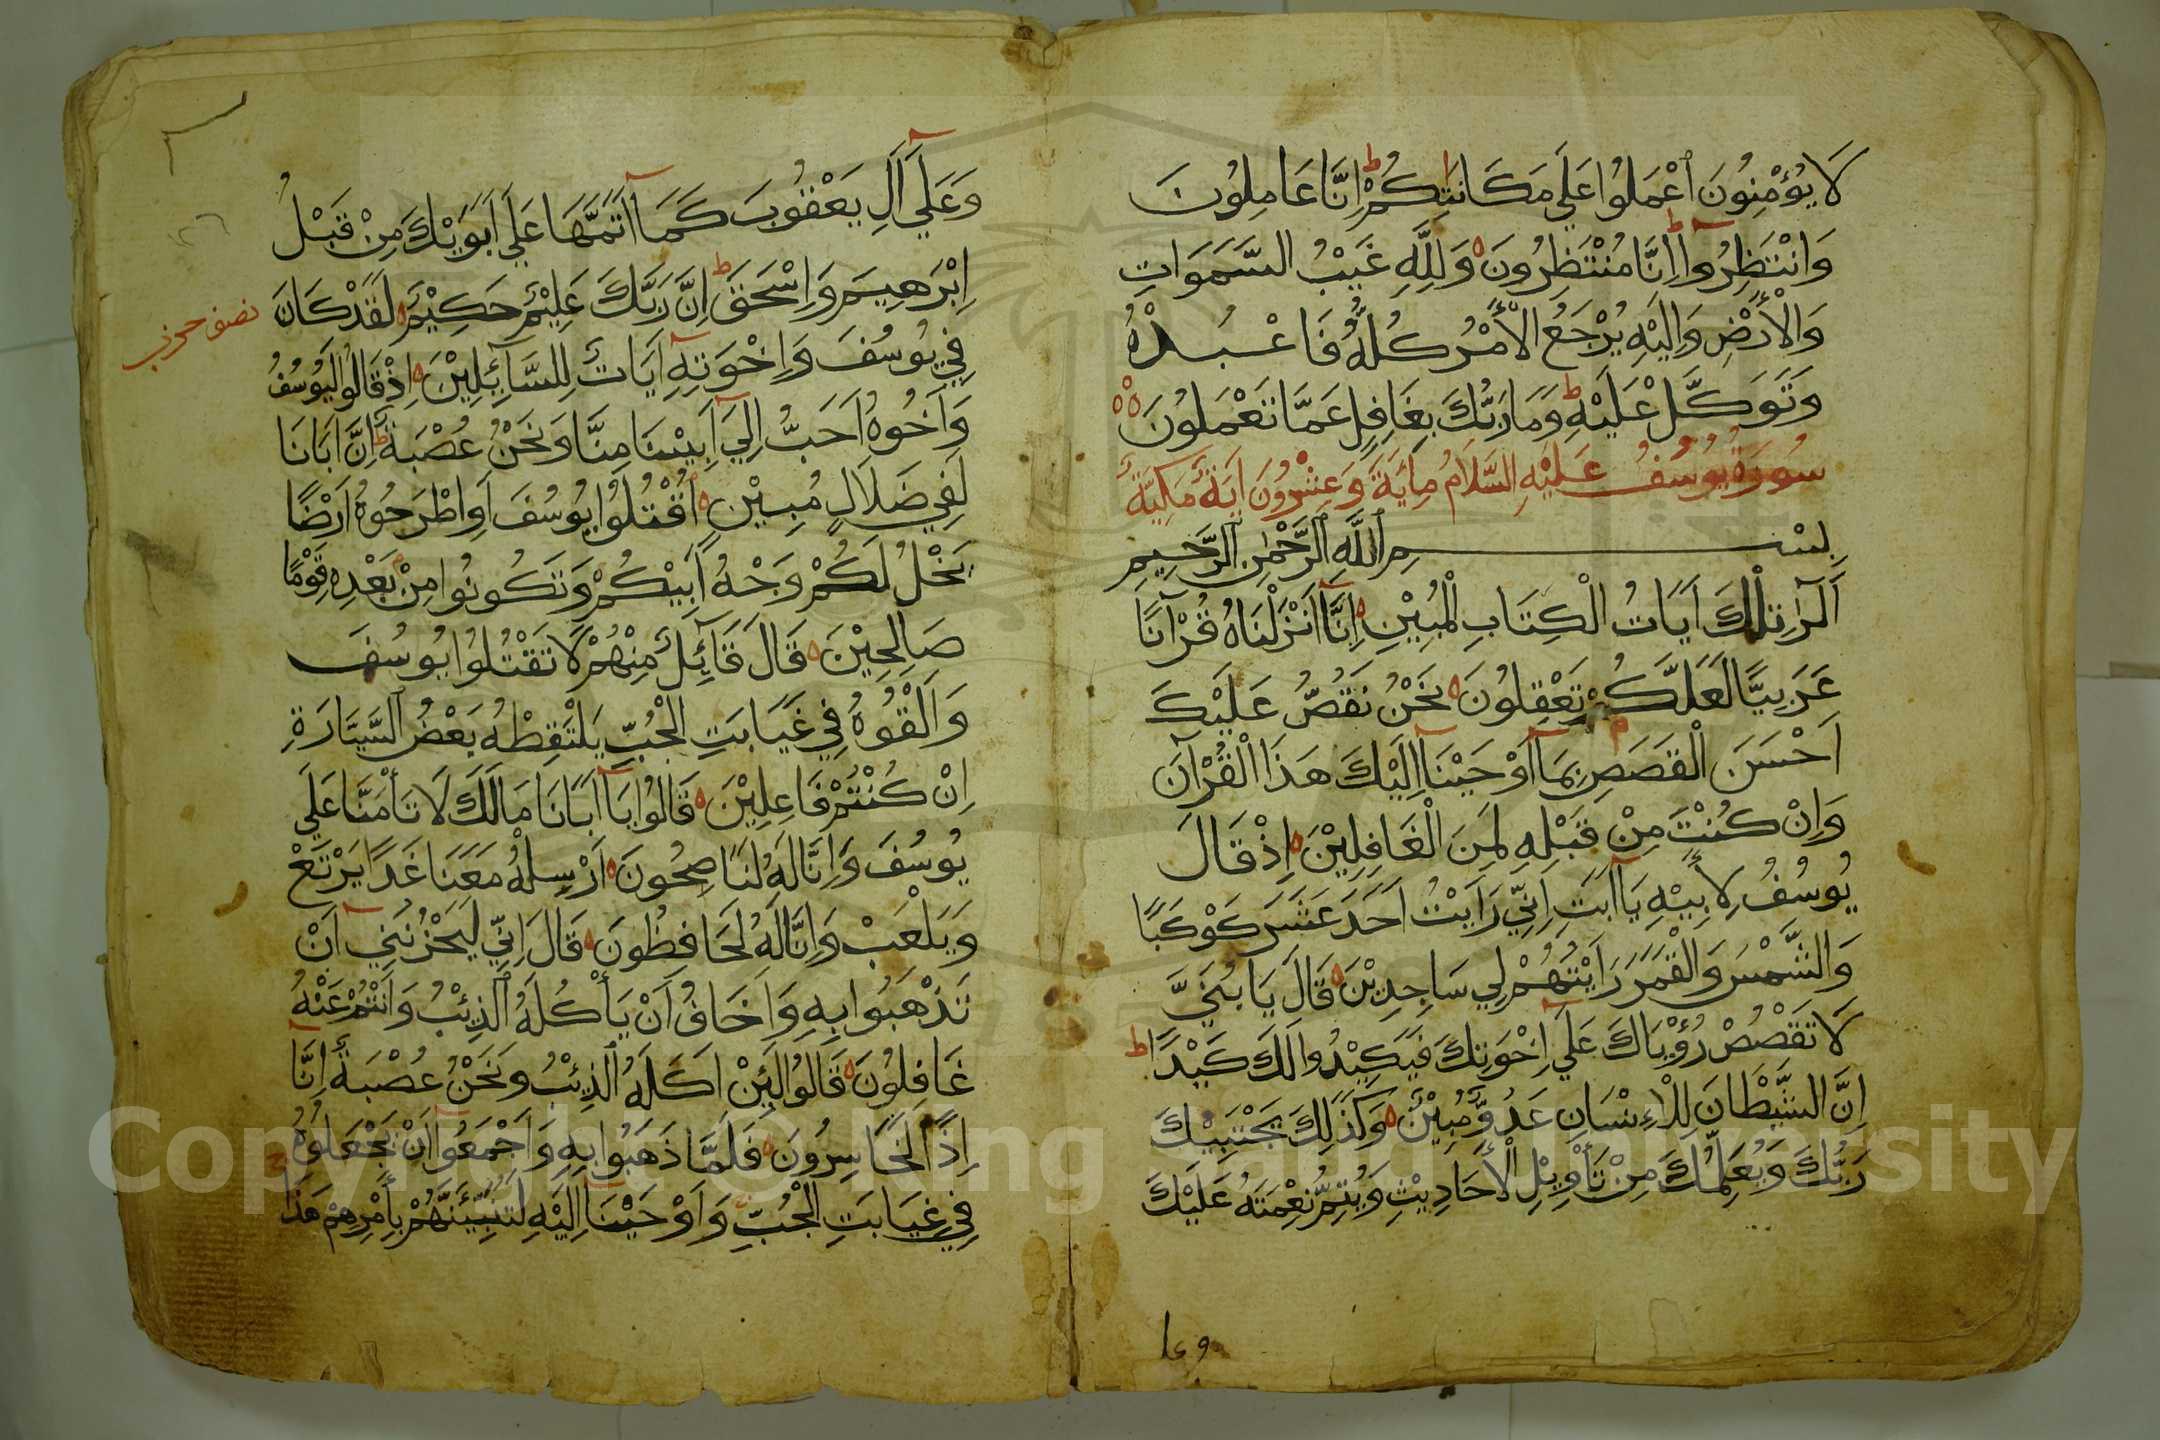 لَا يُؤْمِنُونَ اعْمَلُوا عَلَي مَكَانَتِكُمْ اِنَّا عَامِلُونَ
وَانْتَظِرُوا اِنَّا مُنْتَظِرُونَ وَلِلَّهِ غَيْبُ السَّمَوَاتِ
وَالْأَرْضِ وَاِلَيْهِ يُرْجَعُ الْأَمْرُ كُلُّهُ فَاعْبُدْهُ
وَتَوَكَّلْ عَلَيْهِ وَمَا رَبُّكَ بِغَافِلٍ عَمَّا تَعْمَلُونَ
سُورَةُ يُوسُفُ عَلَيْهِ السَّلَامُ مِايَةٌ وَعِشْرُونَ اَيَةً مَكِيَّةٌ
بِسْمِ اللَّهِ الرَّحْمٰنِ الرَّحِيمِ
الٓرٰ تِلْكَ اَيَاتُ الْكِتَابِ الْمُبِيْنِ اِنَّا اَنْزَلْنَاهُ قُرْآنًا
عَرَبِيًّا لَعَلَّكُمْ تَعْقِلُونَ نَحْنُ نَقُصُّ عَلَيْكَ
اَحْسَنَ الْقَصَصِ بِمَا اَوْحَيْنَا اِلَيْكَ هَذَا الْقُرْآنَ
وَاِنْ كُنْتَ مِنْ قَبْلِهِ لَمِنَ الْغَافِلِيْنَ اِذْ قَالَ
يُوسُفُ لِأَبِيْهِ يَا اَبَتِ اِنِّي رَاَيْتُ اَحَدَ عَشَرَ كَوْكَبًا
وَالشَّمْسَ وَالْقَمَرَ رَاَيْتُهُمْ لِي سَاجِدِيْنَ قَالَ يَا بُنَيَّ
لَا تَقْصُصْ رُؤْيَاكَ عَلَي اِخْوَتِكَ فَيَكِيْدُوا لَكَ كَيْدًا
اِنَّ الشَّيْطَانَ لِلْاِنْسَانِ عَدُوٌّ مُبِيْنٌ وَكَذَلِكَ يَجْتَبِيْكَ
رَبُّكَ وَيُعَلِّمُكَ مِنْ تَأْوِيْلِ الْأَحَادِيْثِ وَيُتِمُّ نِعْمَتَهُ عَلَيْكَ
وعلى
وَعَلَي آلِ يَعْقُوبَ كَمَا اَتَمَّهَا عَلَي اَبَوَيْكَ مِنْ قَبْلُ
اِبْرَهِيمَ وَاِسْحَقَ اِنَّ رَبَّكَ عَلِيْمٌ حَكِيْمٌ لَقَدْ كَانَ
نصف حزب
فِي يُوسُفَ وَاِخْوَتِهِ اَيَاتٌ لِلسَّائِلِيْنَ اِذْ قَالُوا لَيُوسُفُ
وَاَخُوهُ اَحَبُّ اِلَي اَبِيْنَا مِنَّا وَنَحْنُ عُصْبَةٌ اِنَّ اَبَانَا
لَفِي ضَلَالٍ مُبِيْنٍ اُقْتُلُوا يُوسُفَ اَوِ اطْرَحُوهُ اَرْضًا
يَخْلُ لَكُمْ وَجْهُ اَبِيْكُمْ وَتَكُونُوا مِنْ بَعْدِهِ قَوْمًا
صَالِحِيْنَ قَالَ قَائِلٌ مِنْهُمْ لَا تَقْتُلُوا يُوسُفَ
وَاَلْقُوْهُ فِي غَيَابَتِ الْجُبِّ يَلْتَقِطْهُ بَعْضُ السَّيَّارَةِ
اِنْ كُنْتُمْ فَاعِلِيْنَ قَالُوا يَا اَبَانَا مَا لَكَ لَا تَأْمَنَّا عَلَي
يُوسُفَ وَاِنَّا لَهُ لَنَاصِحُونَ اَرْسِلْهُ مَعَنَا غَدًا يَرْتَعْ
وَيَلْعَبْ وَاِنَّا لَهُ لَحَافِظُونَ قَالَ اِنِّي لَيَحْزُنُنِي اَنْ
تَذْهَبُوا بِهِ وَاَخَافُ اَنْ يَأْكُلَهُ الذِئْبُ وَاَنْتُمْ عَنْهُ
غَافِلُونَ قَالُوا لَئِنْ اَكَلَهُ الذِئْبُ وَنَحْنُ عُصْبَةٌ اِنَّا
اِذًا لَخَاسِرُونَ فَلَمَّا ذَهَبُوا بِهِ وَاَجْمَعُوا اَنْ يَجْعَلُوهُ
فِي غِيَابَتِ الْجُبِّ وَاَوْحَيْنَا اِلَيْهِ لَتُنَبِّئَنَّهُمْ بِأَمْرِهِمْ هَذَا
Copyright © King Saud University